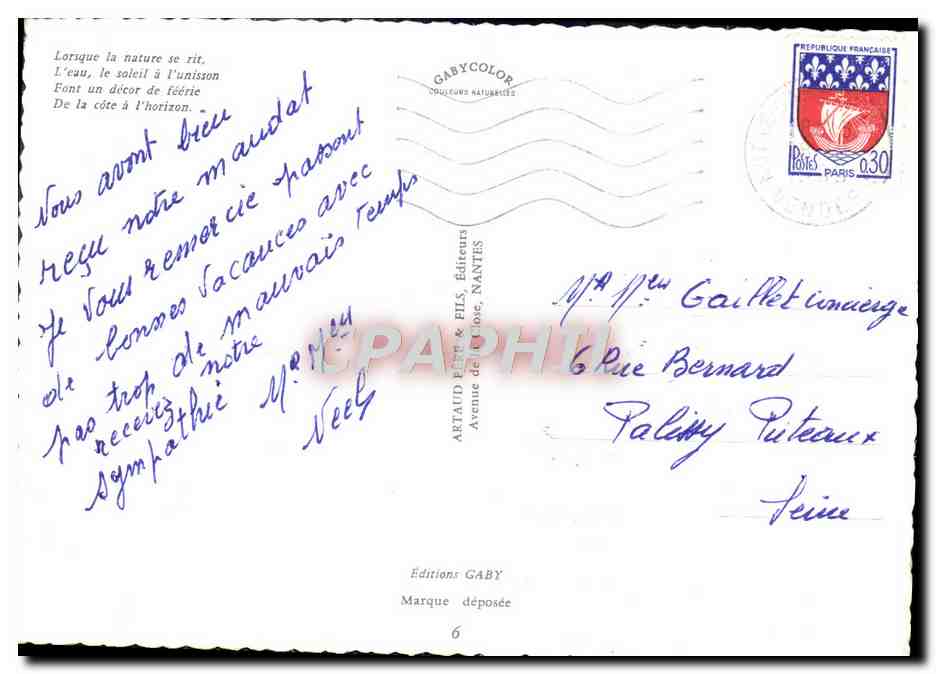 Lorsque la nature se rit,
L'eau, le soleil à l'unisson
Font un décor de féérie
De la côte à l'horizon.
Nous avont bien
reçu notre mandat
Je Vous remercie passont
de bonnes vacances avec
pas trop de mauvais Temps
recevez notre
sympathie Mr Mme
GABYCOLOR
COULEURS NATURELLES
ARTAUD PÈRE & FILS, Éditeurs
Avenue de la Close, NANTES
REPUBLIQUE FRANÇAISE
POSTES
0,30
PARIS
VENDÉE
Mr Mme Gaillet concierge
6 Rue Bernard
Palissy Puteaux
Seine
CPAPHIL
Éditions GABY
Marque déposée
6